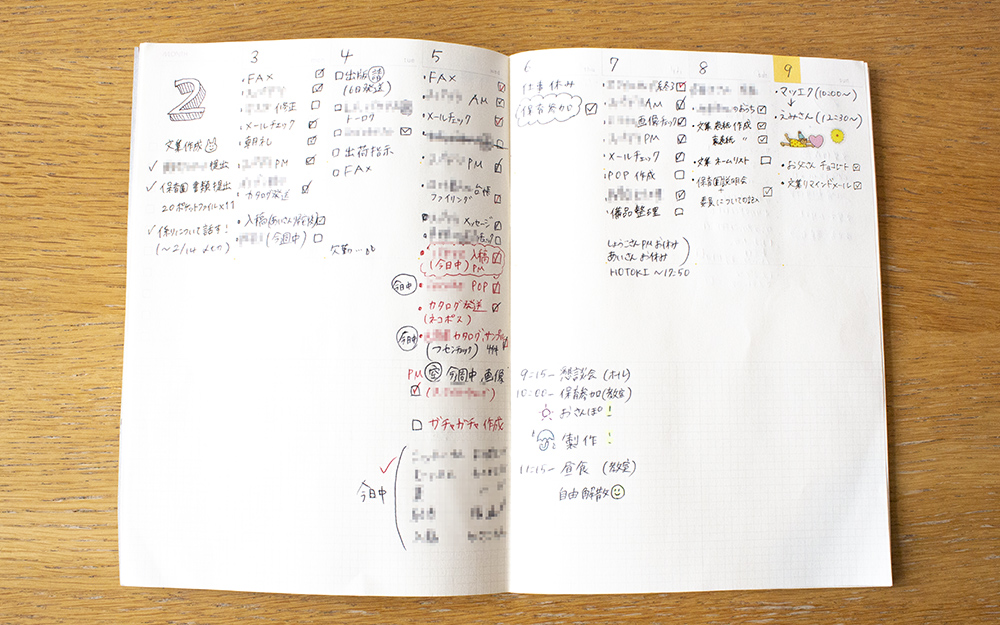 2
文集作成
提出
保育園書類提出
20ポケットファイル×11
係りについて話す!
(〜2/14 メモり)
3
・FAX
修正
・メールチェック
・朝礼
PM
カタログ発送
・入稿
(今週中)
4
出版 請
(6日発送)
トーログ
出荷指示
FAX
欠勤…
5
・FAX
AM
・メールチェック
PM
台帳
ファイリング
メッセージ
チェック
入稿
(今日中) PM
今日中
POP
・カタログ発送
(ネコポス)
今日中
カタログ,サンプル
(フセンチェック)
PM
今週中 画像
ガチャガチャ作成
今日中
6
仕事休み
保育参加
7
AM
画像チェック
・PM
・メールチェック
・POP作成
・備品整理
しょうこさんPMお休み
あいさん お休み
MOTOKI 〜17:50
9:15− 懇談会 (ホール)
10:00− 保育参加(教室)
おさんぽ!
製作!
11:15− 昼食 (教室)
自由解散
8
のおうち
・文集 表紙 作成
裏表紙 〃
・文集 ネームリスト
・保育園説明会
+
委員についての記入
9
・マツエク(10:00〜)
↓
・えみさん(12:30〜)
・お父さん チョコレート
・文集リマインドメール